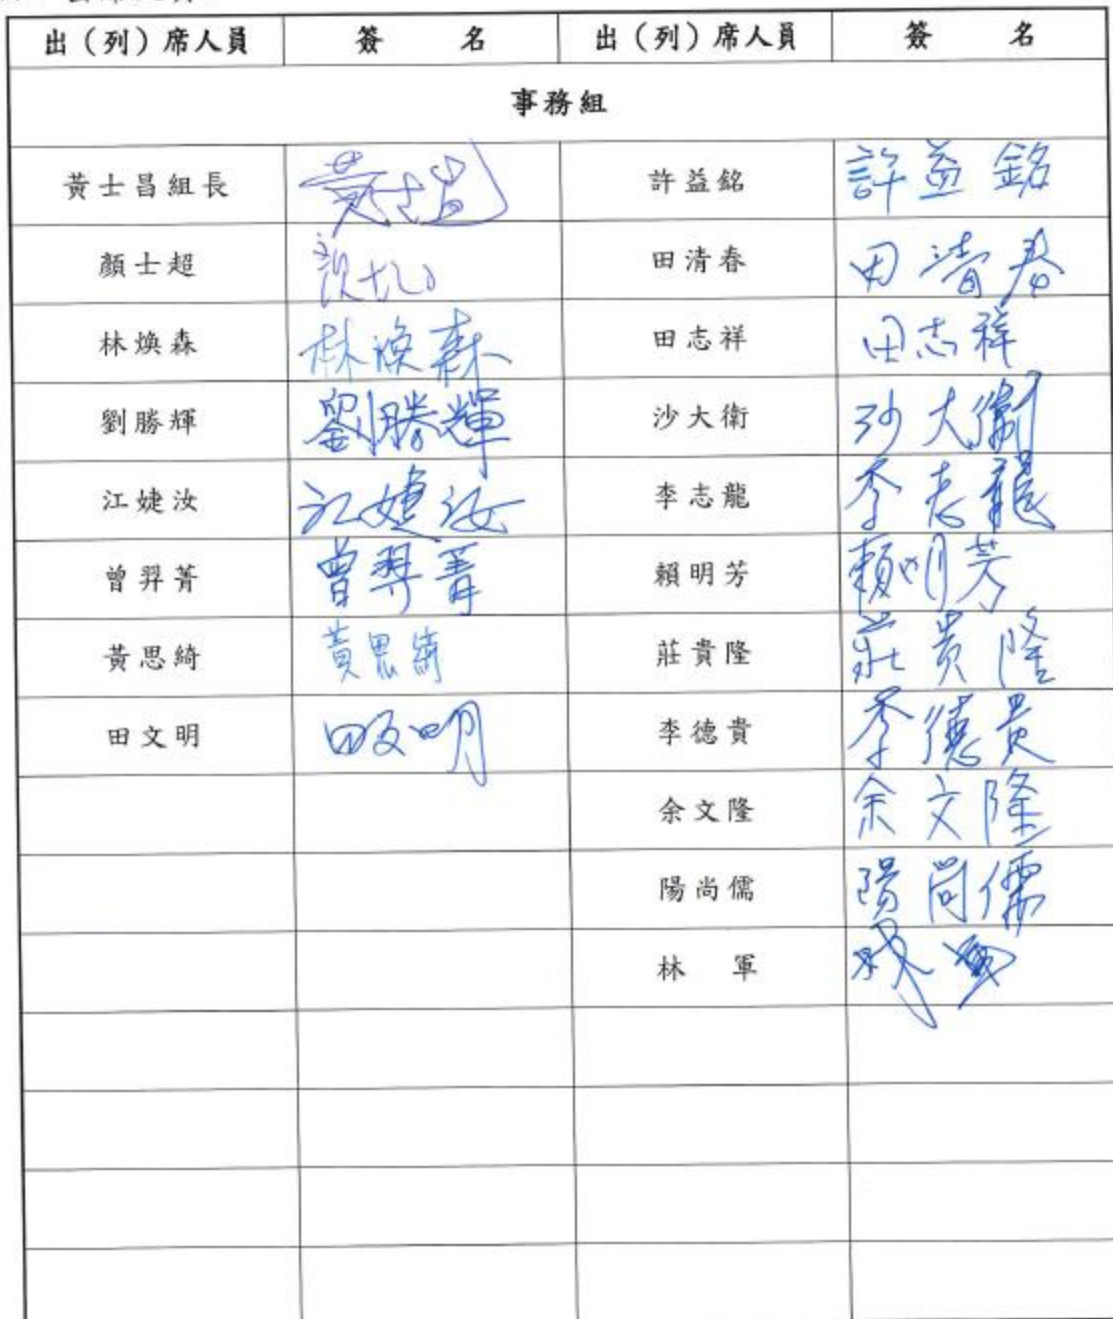 出（列）席人員 簽 名 出（列）席人員 簽 名
事務組
黃士昌組長 黃士昌 許益銘 許益銘
顏士超 田清春 田清春
林煥森 林煥森 田志祥 田志祥
劉勝輝 劉勝輝 沙大衛 沙大衛
江婕汝 江婕汝 李志龍 李志龍
曾羿菁 曾羿菁 賴明芳 賴明芳
黃思綺 黃思綺 莊貴隆 莊貴隆
田文明 田文明 李德貴 李德貴
余文隆 余文隆
陽尚儒 陽尚儒
林 軍 林軍